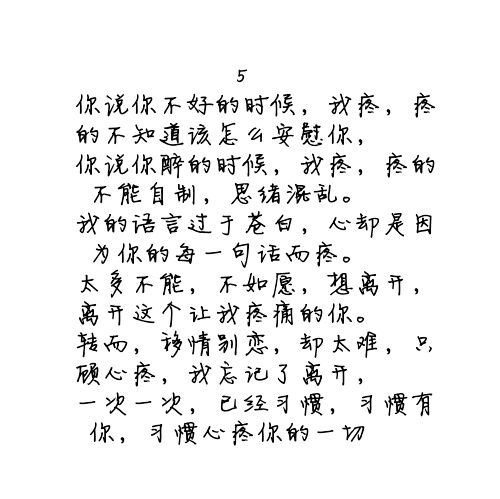 5
你说你不好的时候，我疼，疼
的不知道该怎么安慰你，
你说你醉的时候，我疼，疼的
不能自制，思绪混乱。
我的语言过于苍白，心却是因
为你的每一句话而疼。
太多不能，不如愿，想离开，
离开这个让我疼痛的你。
转而，移情别恋，却太难，只
顾心疼，我忘记了离开，
一次一次，已经习惯，习惯有
你，习惯心疼你的一切